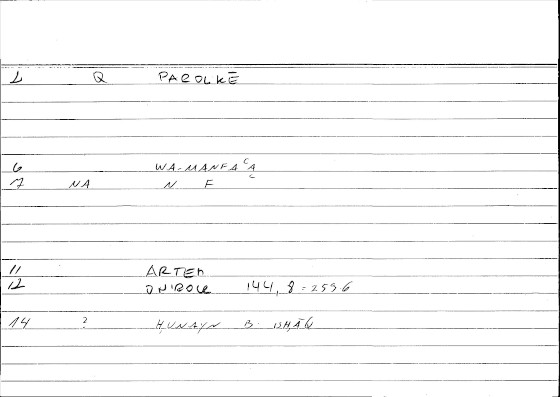 1 Q PAROLKĒ
6 WA-MANFAʿA
7 NA N F ʿ
11 ARTEM
12 ONIROCR 144, 8 = 259 6
14 ? ḤUNAYN B. ISḤĀQ